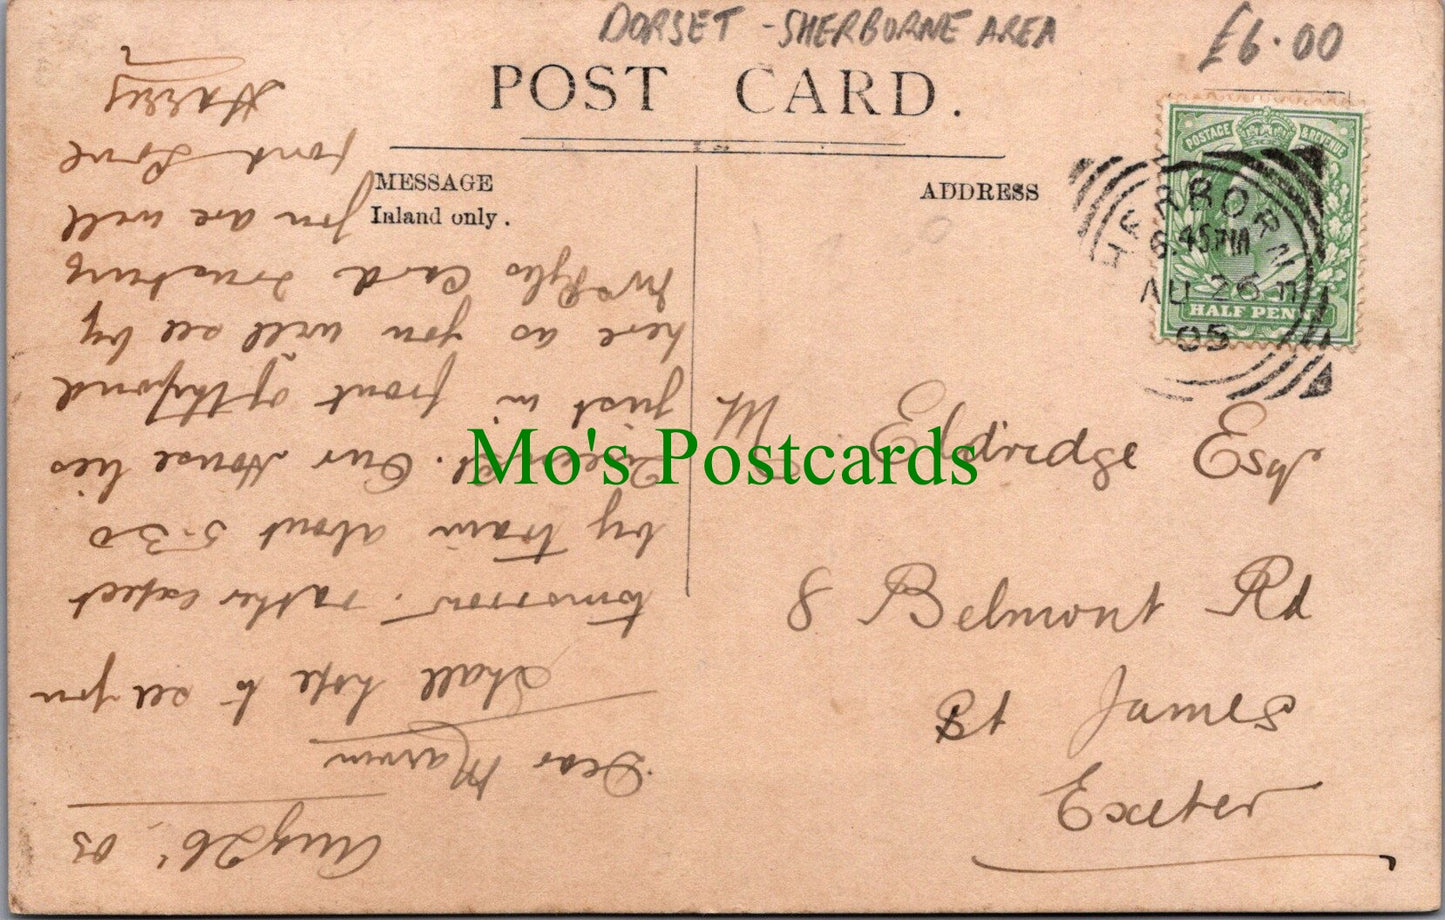 DORSET - SHERBORNE AREA
£6.00
POST CARD.
MESSAGE
Inland only.
ADDRESS
POSTAGE & REVENUE
HALF PENNY
SHERBORNE
6.45 PM
AU 26
05
Eldridge Esq
8 Belmont Rd
St James
Exeter
Mo's Postcards
Aug 26' 05
Dear
Shall hope to see you
tomorrow. rather expect
by train about 5-30
Our House lies
just in front of the pond
here as you will see by
Card trusting
you are well
fond Love
Harry